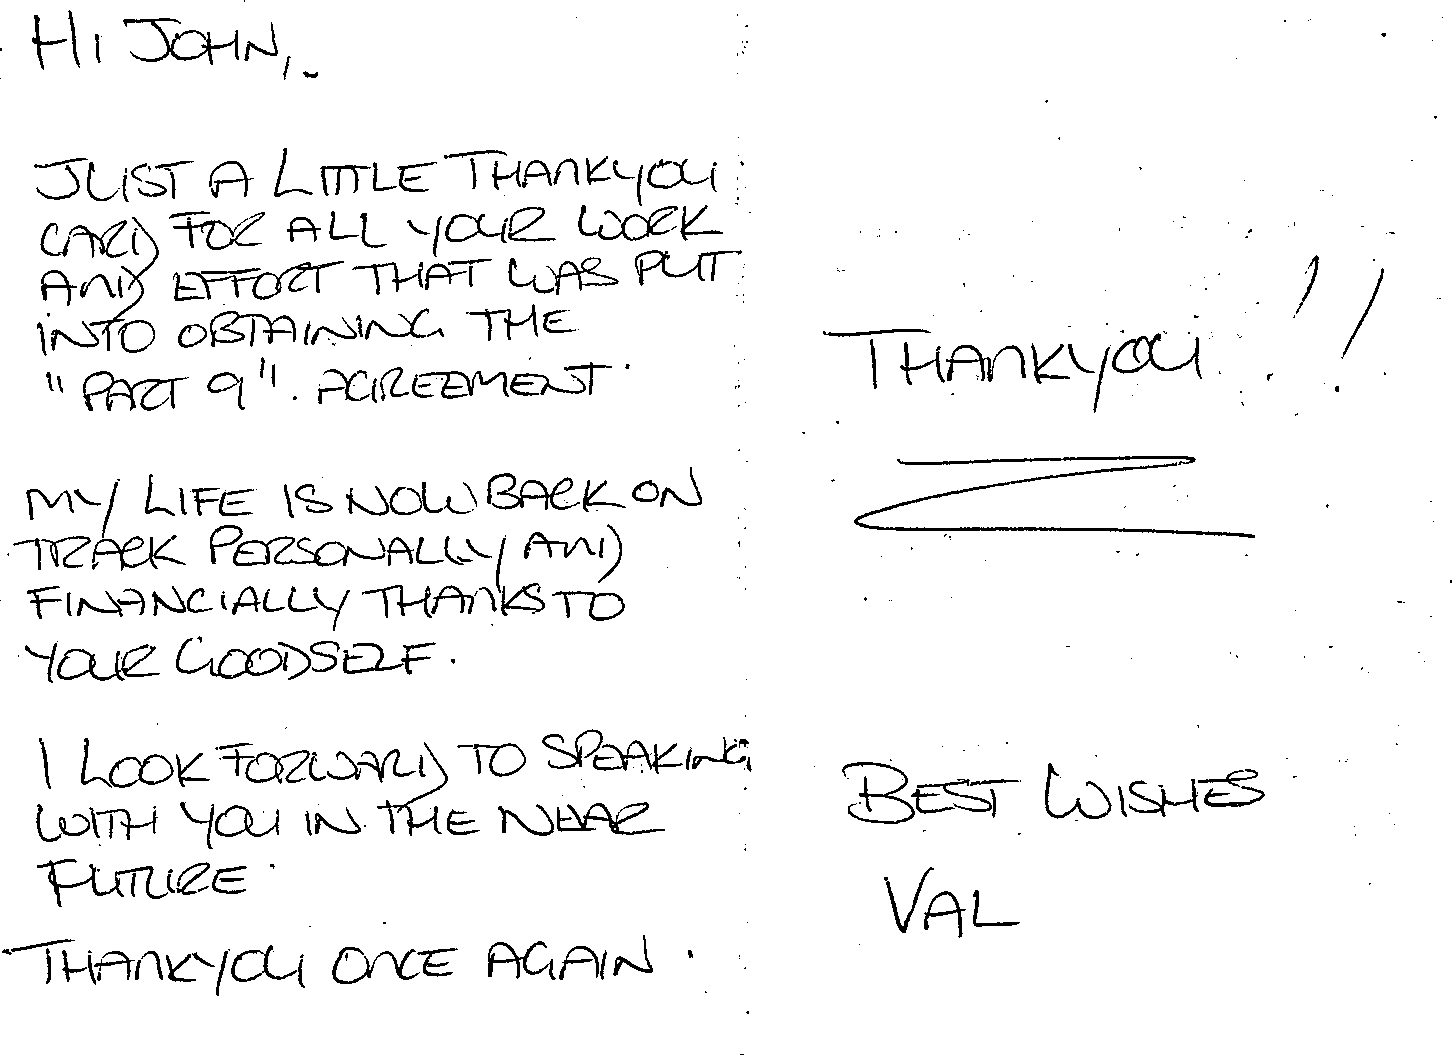 HI JOHN,
JUST A LITTLE THANKYOU
CARD FOR ALL YOUR WORK
AND EFFORT THAT WAS PUT
INTO OBTAINING THE
"PART 9". AGREEMENT.
MY LIFE IS NOW BACK ON
TRACK PERSONALLY AND
FINANCIALLY THANKS TO
YOUR GOODSELF.
I LOOK FORWARD TO SPEAKING
WITH YOU IN THE NEAR
FUTURE.
THANKYOU ONCE AGAIN.
THANKYOU!!
BEST WISHES
VAL